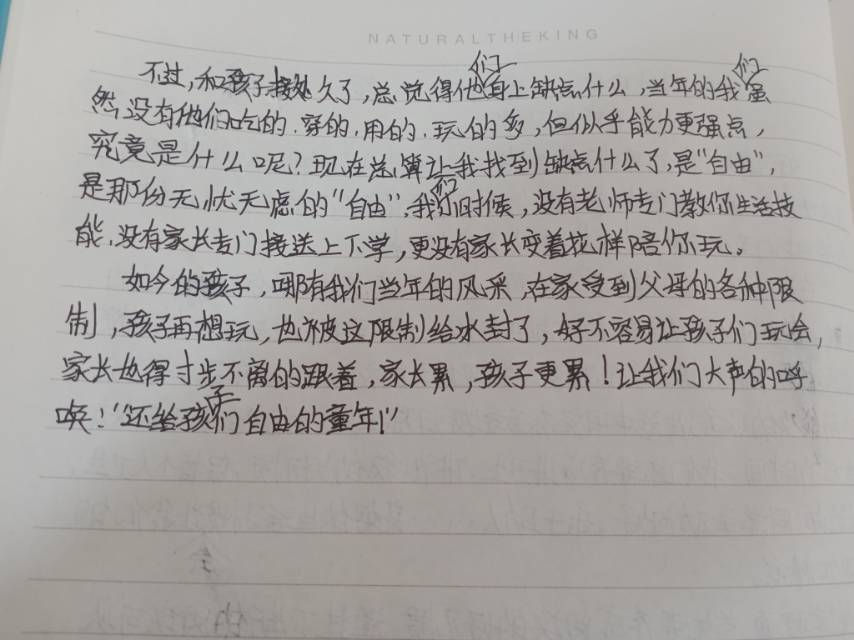 NATURALTHEKING
不过,和孩子接处久了,总觉得他们身上缺点什么,当年的我们虽
然没有他们吃的.穿的.用的.玩的多,但似乎能力更强点,
究竟是什么呢?现在总算让我找到缺点什么了,是"自由",
是那份无忧无虑的"自由",我们小时候,没有老师专门教你生活技
能,没有家长专门接送上下学,更没有家长变着花样陪你玩。
如今的孩子,哪有我们当年的风采,在家受到父母的各种限
制,孩子再想玩,也被这限制给冰封了,好不容易让孩子们玩会,
家长也得寸步不离的跟着,家长累,孩子更累!让我们大声的呼
唤!"还给孩子们自由的童年!"